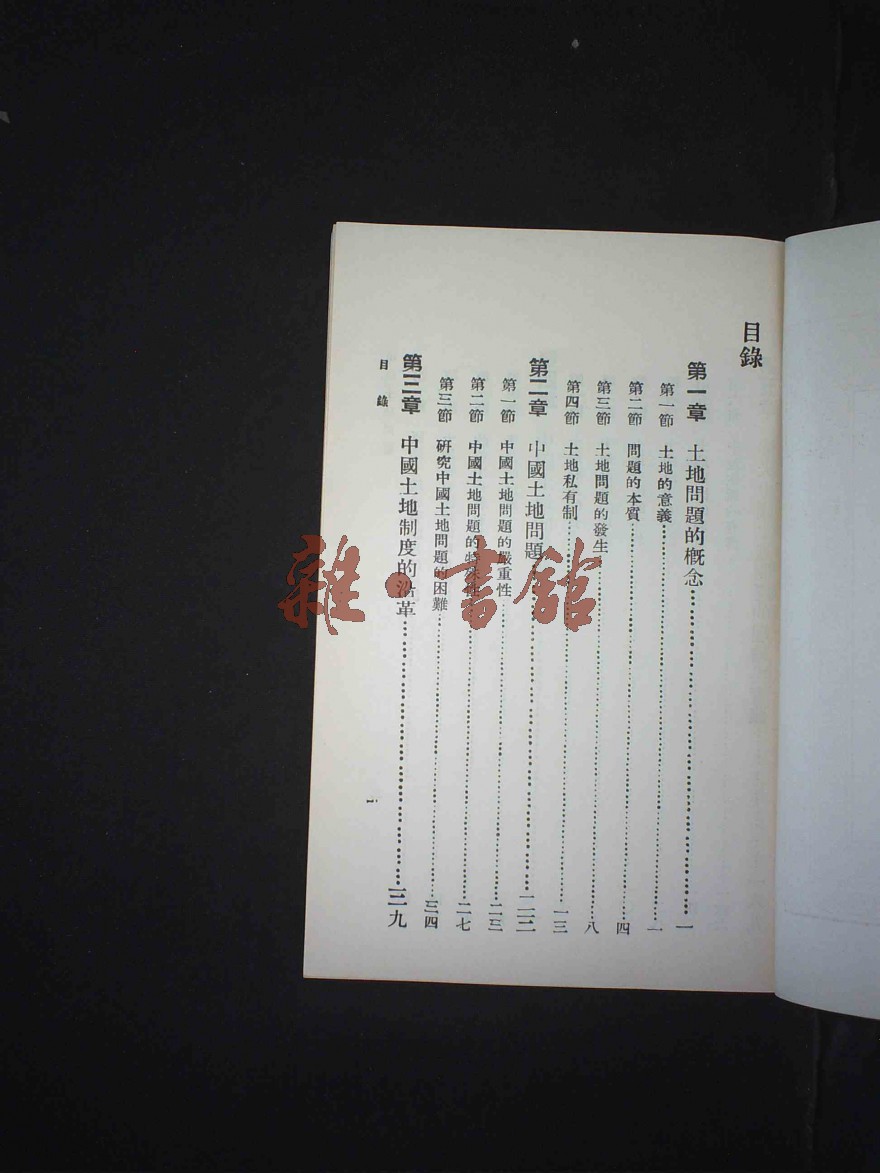 目錄
第一章 土地問題的概念……一
第一節 土地的意義……一
第二節 問題的本質……四
第三節 土地問題的發生……八
第四節 土地私有制……一三
第二章 中國土地問題……二三
第一節 中國土地問題的嚴重性……二三
第二節 中國土地問題的特殊性……二七
第三節 研究中國土地問題的困難……三四
第三章 中國土地制度的沿革……三九
目錄
i
雜·書館